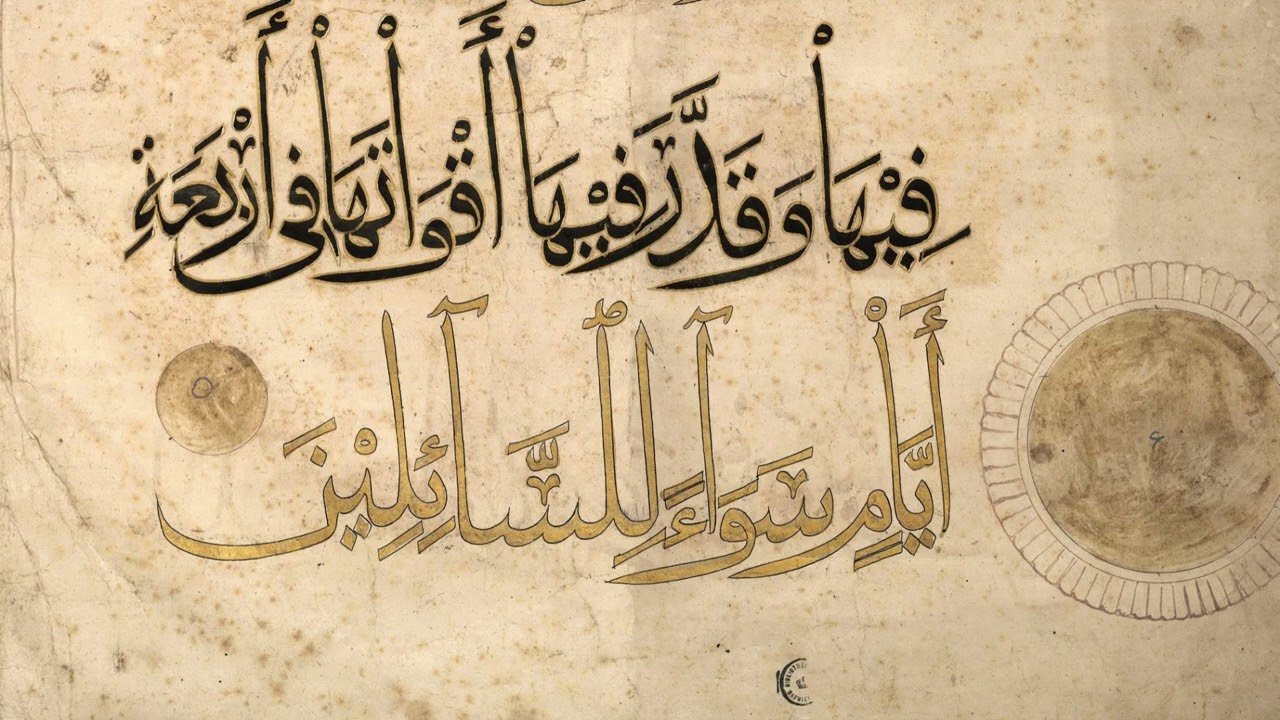 فِيْهَا وَقَدَّرَ فِيْهَا أَقْوَاتَهَا فِى أَرْبَعَةِ
أَيَّامٍ سَوَآءً لِلسَّآئِلِيْنَ